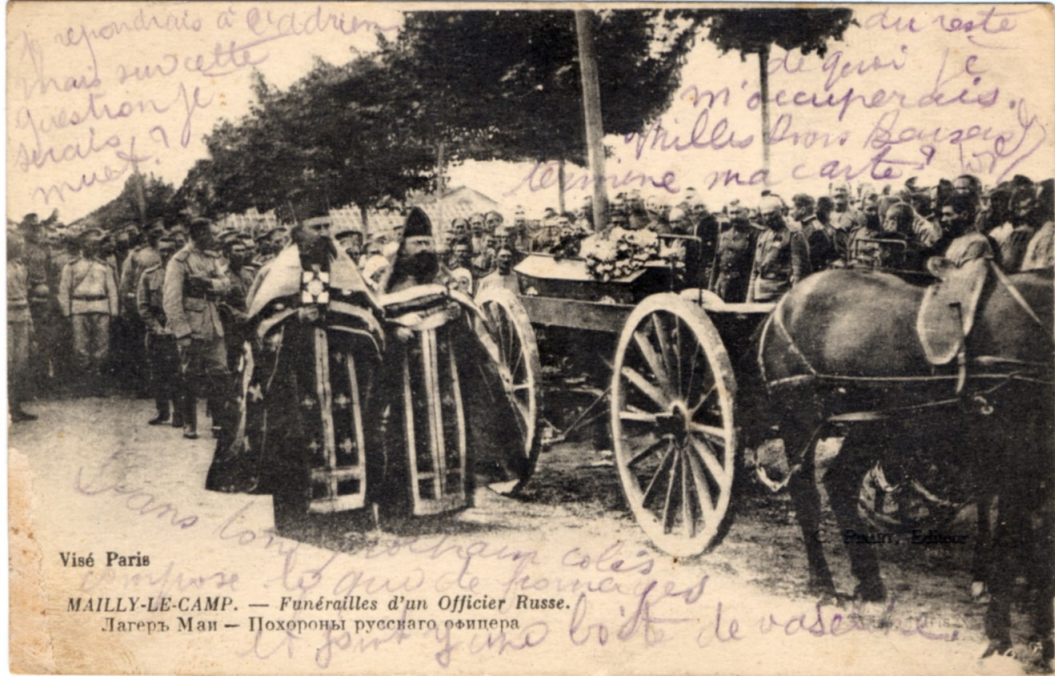 je repondrais à
mais sur cette
question je
serais
muet.
du reste
de quoi je
m'occuperais.
Milles Gros Baisers
termine ma carte
Dans ton prochain colis
compose le que de fromages
et joint y une boîte de vaseline.
Visé Paris
C. , Editeur
MAILLY-LE-CAMP. — Funérailles d'un Officier Russe.
Лагеръ Маи — Похороны русскаго офицера